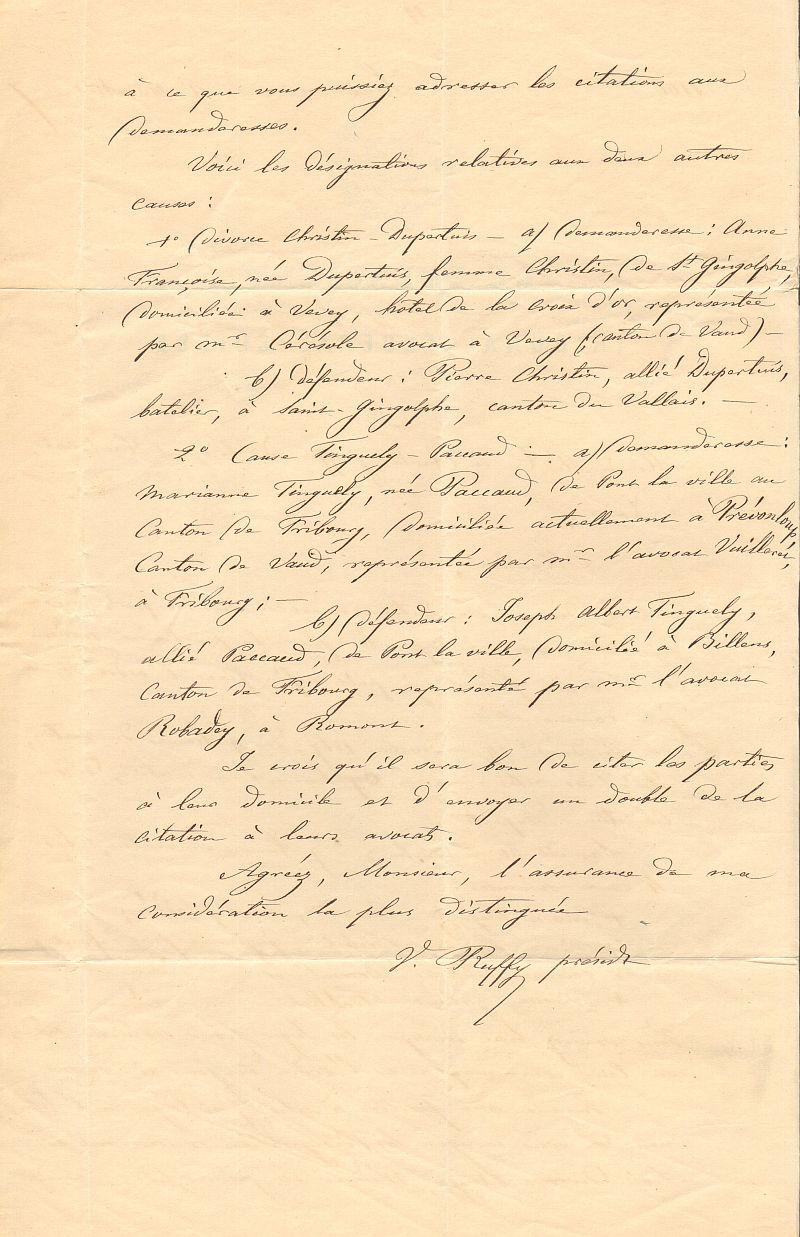 à ce que vous puissiez adresser les citations aux
demanderesses.
Voici les désignations relatives aux deux autres
causes :
1° divorce Christin - Dupertuis — a) demanderesse : Anne
Françoise, née Dupertuis, femme Christin, de St Gingolphe,
domiciliée à Vevey, hôtel de la croix d'or, représentée
par mr Cérésole avocat à Vevey (canton de Vaud) —
b) défendeur : Pierre Christin, allié Dupertuis,
batelier, à Saint-Gingolphe, canton du Vallais. —
2° Cause Tinguely - Paccaud — a) demanderesse :
Marianne Tinguely, née Paccaud, de Pont la ville au
Canton de Fribourg, domiciliée actuellement à Prévonloup,
Canton de Vaud, représentée par mr l'avocat Vuilleret,
à Fribourg ; —
b) défendeur : Joseph Albert Tinguely,
allié Paccaud, de Pont la ville, domicilié à Billens,
Canton de Fribourg, représenté par mr l'avocat
Robadey, à Romont.
Je crois qu'il sera bon de citer les parties
à leur domicile et d'envoyer un double de la
citation à leurs avocats.
Agréez, Monsieur, l'assurance de ma
considération la plus distinguée
V. Ruffy présidt